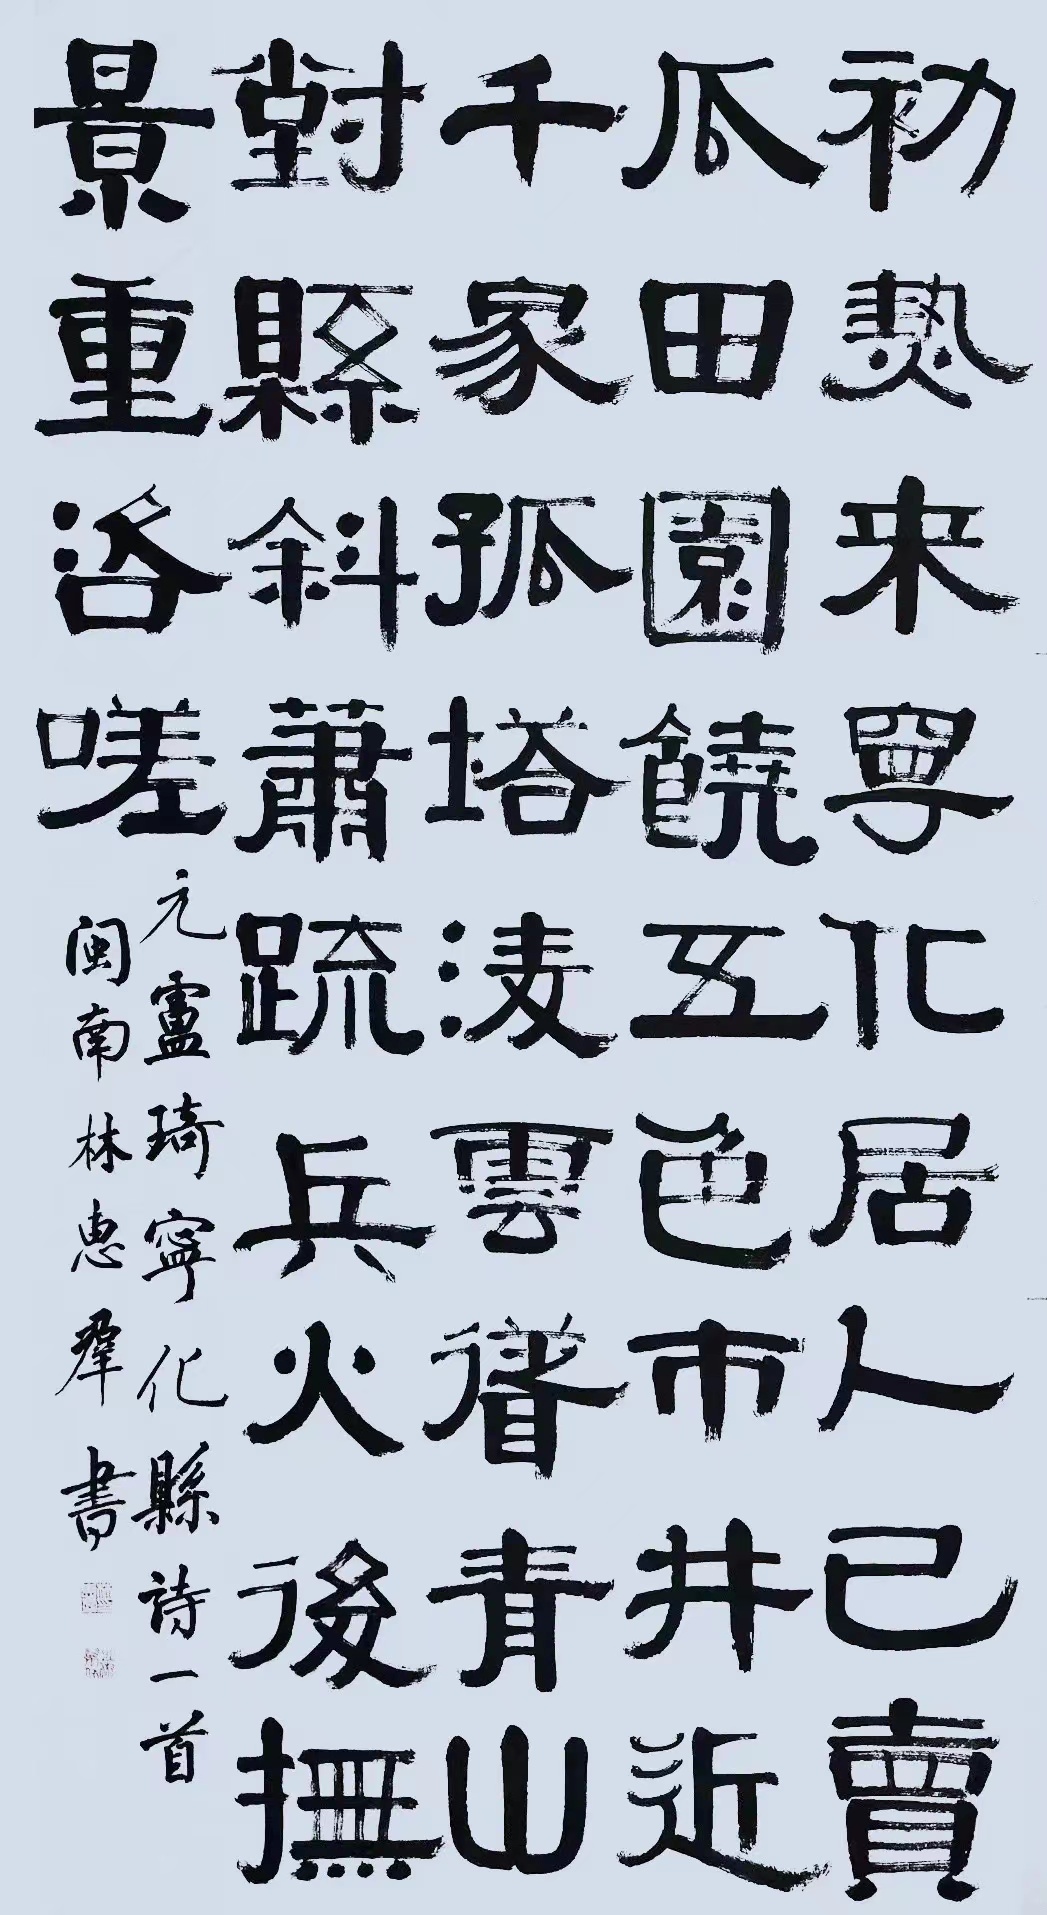 初熱来寧化居人已賣
瓜田園饒五色市井近
千家孤塔淩雲漢青山
對縣斜蕭疏兵火後撫
景重咨嗟
元盧琦寧化縣詩一首
閩南林惠群書